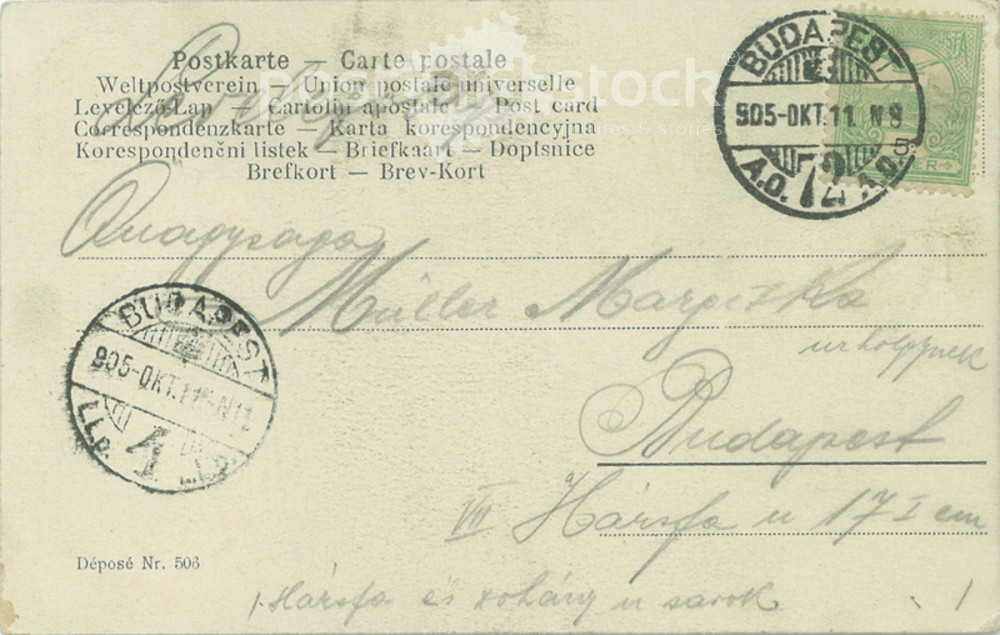 Postkarte — Carte postale
Weltpostverein — Union postale universelle
Levelező-Lap — Cartolin apostale — Post card
Correspondenzkarte — Karta korespondencyjna
Korespondenčni listek — Briefkaart — Dopisnice
Brefkort — Brev-Kort
BUDAPEST
905-OKT.11. N8
A.D. 72 A.D.
Önagysága
Müller Margitka
urhölgynek
BUDAPEST
905-OKT.11-N11
Budapest
VII Hársfa u 17 I em
Déposé Nr. 506
Hársfa és u sarok